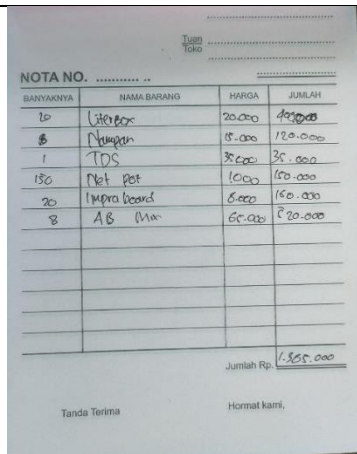 Tuan
Toko
NOTA NO.
BANYAKNYA NAMA BARANG HARGA JUMLAH
20 Literbox 20.000
8 Nampan 15.000 120.000
1 TDS 35.000 35.000
150 Net pot 1000 150.000
20 Impra board 8.000 160.000
8 AB Mix 65.000 520.000
Jumlah Rp. 1.385.000
Tanda Terima Hormat kami,